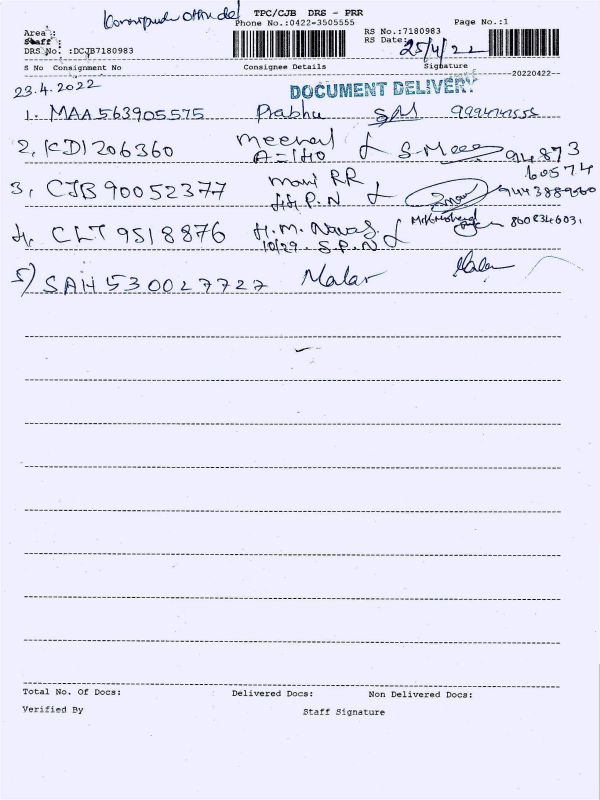 TPC/CJB DRS - PRR
Phone No.:0422-3505555
Page No.:1
Area :
Staff :
DRS No. :DCJB7180983
RS No.:7180983
RS Date: 25/4/22
S No Consignment No Consignee Details Signature
--20220422--
23.4.2022
DOCUMENT DELIVERY
1. MAA563905575 Prabhu SM
2, KDI206360 Meenal S-Meee 94873
A=140 60574
3, CJB90052377 mani RR 9443889560
44 P.N
4, CLT9518876 H.M. Nawas 8608346031
10/29. S.P.N
5) SAH530027727 Malar Malar
Total No. Of Docs: Delivered Docs: Non Delivered Docs:
Verified By Staff Signature